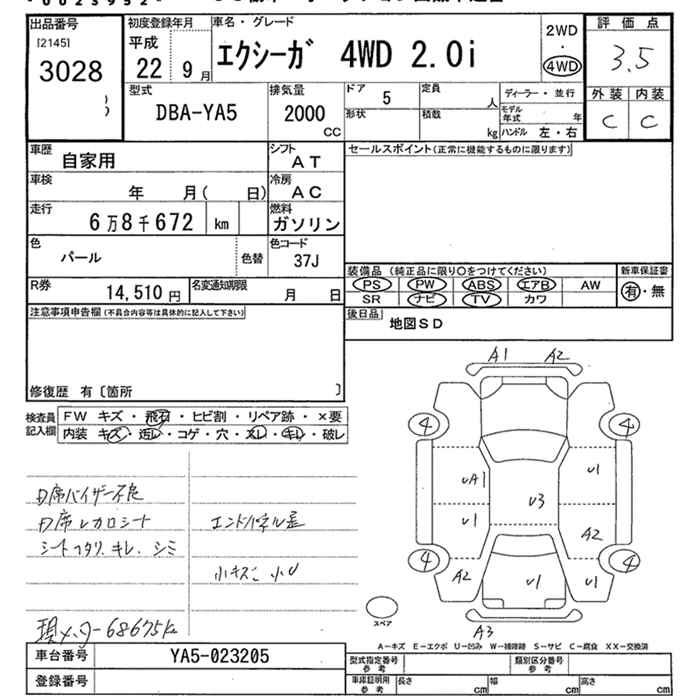 出品番号
[2145]
3028
初度登録年月
平成
22 9 月
車名・グレード
エクシーガ 4WD 2.0i
2WD
・
4WD
評価点
3.5
外装 内装
C C
型式
DBA-YA5
排気量
2000
CC
ドア
5
定員
人
形状
積載
kg
ディーラー・並行
モデル
年式
年
ハンドル 左・右
車歴
自家用
シフト
AT
車検
年 月( 日)
冷房
AC
走行
6万8千672 km
燃料
ガソリン
色
パール
色替
色コード
37J
R券
14,510 円
名変通知期限
月 日
セールスポイント(正常に機能するものに限ります)
装備品 (純正品に限り○をつけてください)
PS PW ABS エアB AW
SR ナビ TV カワ
新車保証書
有・無
後日品
地図SD
注意事項申告欄(不具合内容等は具体的に記入して下さい)
修復歴 有〔箇所 〕
検査員
記入欄
FW キズ・飛石・ヒビ割・リペア跡・×要
内装 キズ・汚レ・コゲ・穴・スレ・キレ・破レ
D席バイザー不良
D席レカロシート
シートヘタリ.キレ.シミ
エンドパネル歪
小キズ 小U
現メーター68675k
A1 A2
4 4
UA1 U1
U3
U1 A2
4 4
A2 U1 U1
A3
スペア
A-キズ E-エクボ U-凹み W-補修跡 S-サビ C-腐食 XX-交換済
車台番号
YA5-023205
登録番号
型式指定番号
参考
類別区分番号
参考
車庫証明用
参考
長さ cm 幅 cm 高さ cm